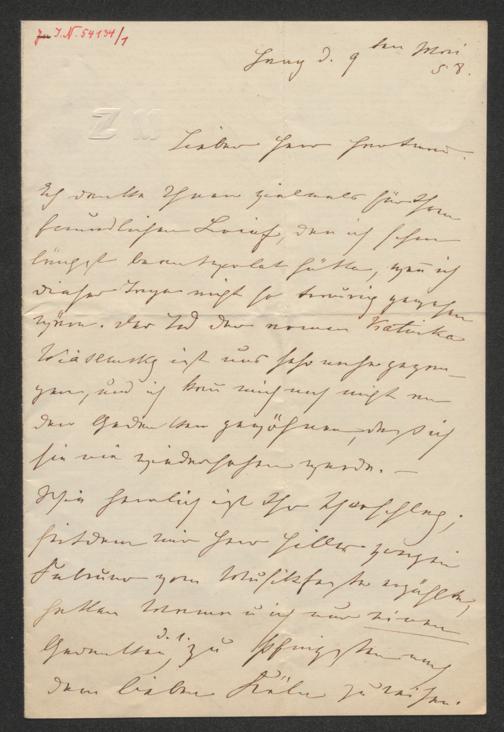 Zu I.N. 54131/1
Haag d. 9ten Mai
58.
Lieber Herr
Ich danke Ihnen vielmals für Ihren
freundlichen Brief, den ich schon
längst beantwortet hätte, wenn ich
dieser Tage nicht so traurig gewesen
wäre. Der Tod der armen Katinka
Wiasemsky ist uns sehr nahe gegan-
gen, und ich kann mich noch nicht an
den Gedanken gewöhnen, daß ich
sie nie wiedersehen werde. —
Wie herrlich ist Ihr Vorschlag;
seitdem mir Herr Hiller
Februar vom Musikfeste erzählte,
hatten Mama u. ich nur einen
Gedanken, d. i. zu Pfingsten nach
dem lieben Köln zu reisen.